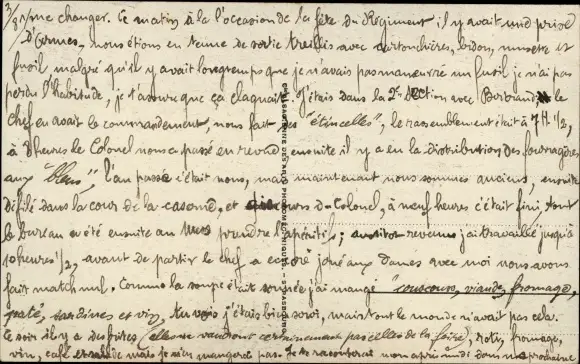 3/ me changer. Ce matin à la l'occasion de la fête du Régiment il y avait une prise
d'armes, nous étions en tenue de sortie treillis avec cartouchières, bidon, musette et
fusil malgré qu'il y avait longtemps que je n'avais pas manœuvré un fusil je n'ai pas
perdu l'habitude, je t'assure que ça claquait. J'étais dans la 2e section avec le
chef en avait le commandement, nous fait des "étincelles", le rassemblement était à 7H 1/2,
à 8 heures le Colonel nous a passé en revue, ensuite il y a eu la distribution des fourragères
aux "bleus", l'an passé c'était nous, mais maintenant nous sommes anciens, ensuite
défilé dans la cour de la caserne, et discours du Colonel, à neuf heures c'était fini, tout
le bureau a été ensuite au mess prendre l'apéritif; aussitôt revenus j'ai travaillé jusqu'à
10 heures 1/2, avant de partir le chef a encore joué aux Dames avec moi nous avons
fait match nul. Comme la soupe était sonnée j'ai mangé "couscous, viande, fromage,
paté, sardines et vin, tu vois j'étais bien servi, mais tout le monde n'avait pas cela.
Ce soir il y a des frites (elles ne vaudront certainement pas celles de la foire), roti, fromage,
vin, café mais je n'en mangerai pas. Je te raconterai mon après midi dans une prochaine